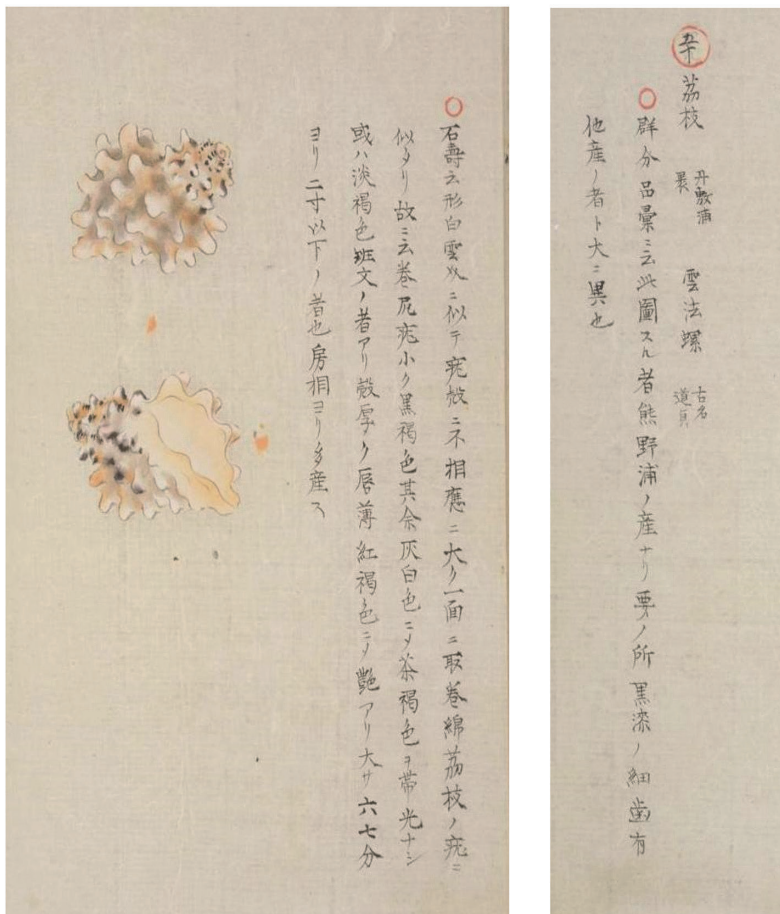 荔枝 丹敷浦 裏 雲法螺 古名 道貝
群分品彙ニ云此圖スル者熊野浦ノ産ナリ要ノ所黒漆ノ細歯有
他産ノ者ト大ニ異也
石壽云形白雲 ニ似テ疣殻ニ不相應ニ大ク一面ニ取巻綿荔枝ノ疣ニ
似タリ故ニ云巻尻疣小ク黒褐色其余灰白色ニメ茶褐色ヲ帯光ナシ
或ハ淡褐色斑文ノ者アリ殻厚ク唇薄紅褐色ニメ艶アリ大サ六七分
ヨリ二寸以下ノ者也房相ヨリ多産ス